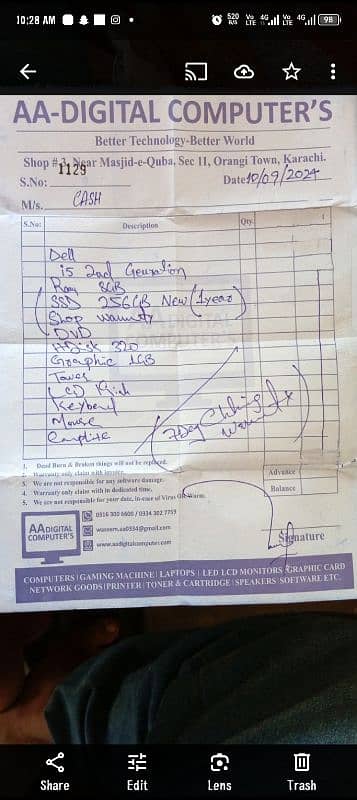 10:28 AM
520 B/S Vo LTE 4G Vo LTE 4G 98
AA-DIGITAL COMPUTER'S
Better Technology-Better World
Shop # 3, Near Masjid-e-Quba, Sec 11, Orangi Town, Karachi.
S.No: 1129 Date 10/09/2024
M/s. CASH
S.No: Description Qty.
Dell
i5 2nd Generation
Ram 8GB
SSD 256GB New (1 year)
Shop warrnty
DVD
HDisk 320
Graphic 1GB
Tower
LCD
Keybord
Mouse
Complite
7 Day Warn
AA DIGITAL
COMPUTER'S
1. Dead Burn & Broken things will not be replaced.
2. Warranty only claim with invoice.
3. We are not responsible for any software damage.
4. Warranty only claim with in dedicated time.
5. We are not responsible for your date, in-case of Virus OR Warm.
Advance
Balance
AA DIGITAL
COMPUTER'S
0316 300 6600 / 0334 302 7753
waseem.aa0334@gmail.com
www.aadigitalcomputer.com
Signature
COMPUTERS | GAMING MACHINE | LAPTOPS | LED LCD MONITORS | GRAPHIC CARD
NETWORK GOODS | PRINTER | TONER & CARTRIDGE | SPEAKERS | SOFTWARE ETC.
Share Edit Lens Trash